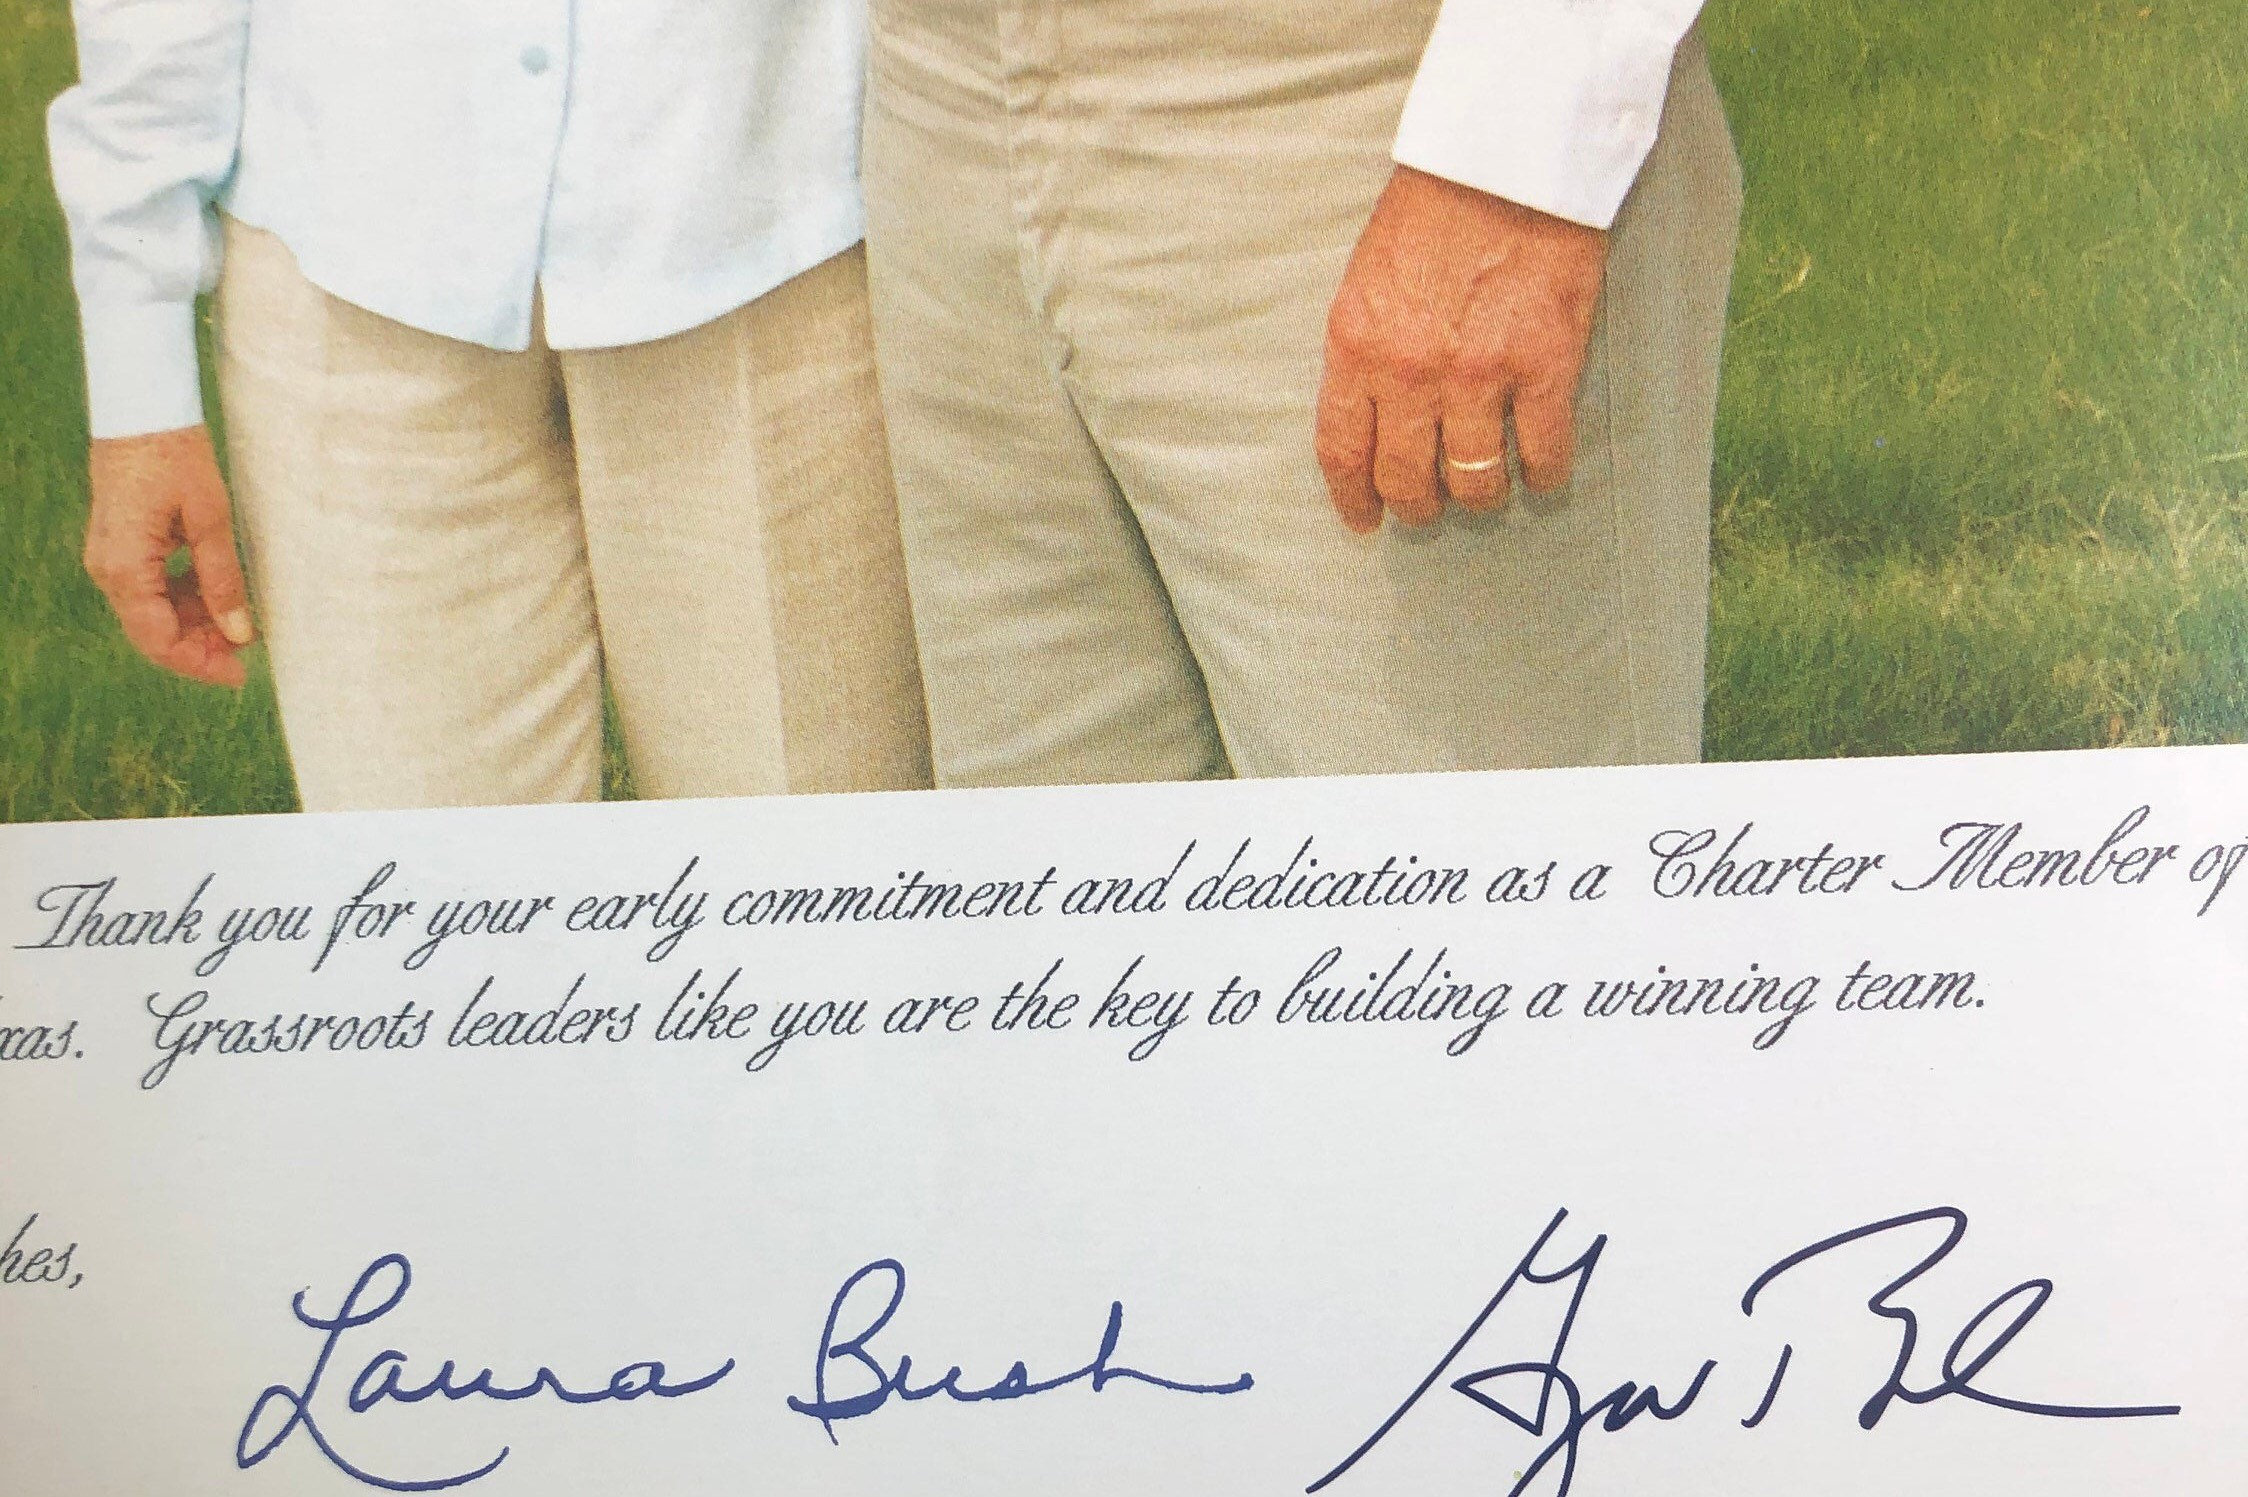 Thank you for your early commitment and dedication as a Charter Member of
xas. Grassroots leaders like you are the key to building a winning team.
hes,
Laura Bush